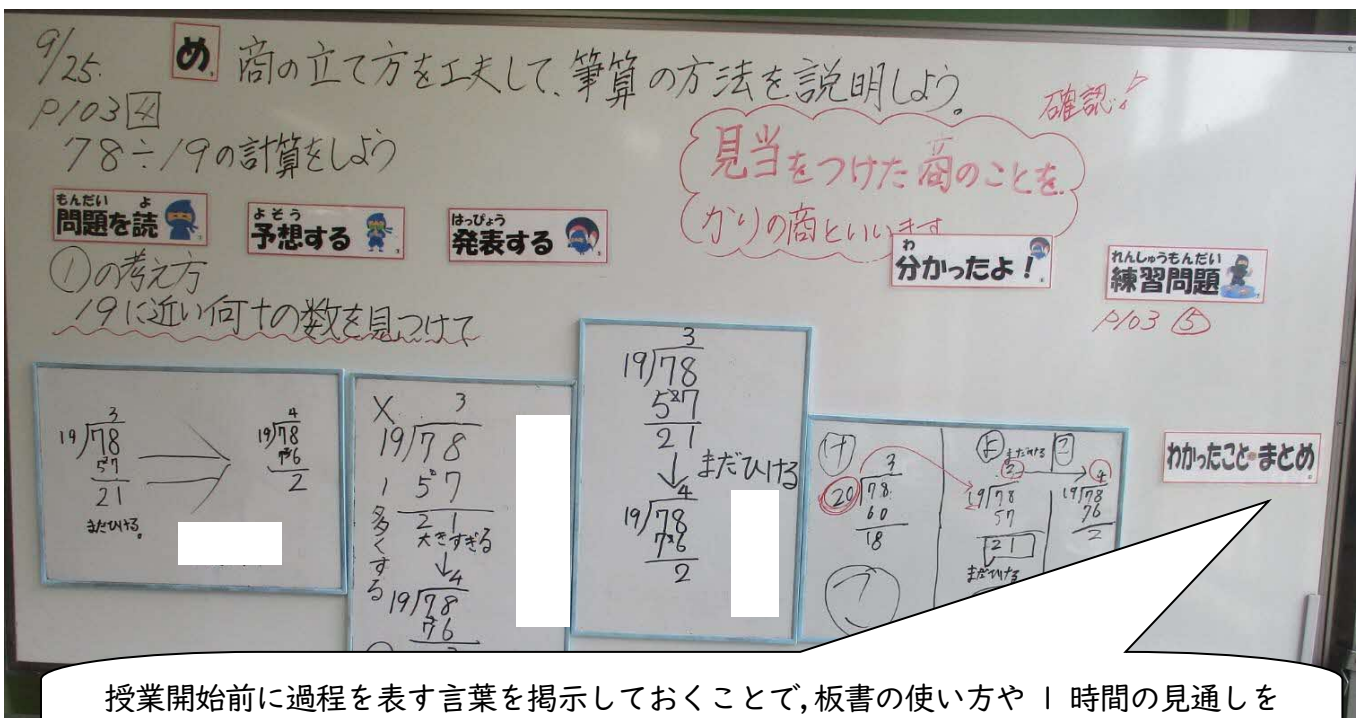 9/25.
め
商の立て方を工夫して、筆算の方法を説明しよう。
P103 4
78÷19の計算をしよう
確認!
見当をつけた商のことを
かりの商といいます
もんだい よ
問題を読
よそう
予想する
はっぴょう
発表する
わ
分かったよ!
れんしゅうもんだい
練習問題
P103 ⑤
①の考え方
19に近い何十の数を見つけて
3
19)78
57
21
まだひける。
4
19)78
76
2
X 3
19)78
57
21
大きすぎる
↓
1多くする
4
19)78
76
3
19)78
57
21
↓まだひける
4
19)78
76
2
3
20)78
60
18
まだひける
3
19)78
57
21
まだひける
4
19)78
76
2
わかったこと・まとめ
授業開始前に過程を表す言葉を掲示しておくことで,板書の使い方や 1 時間の見通しを